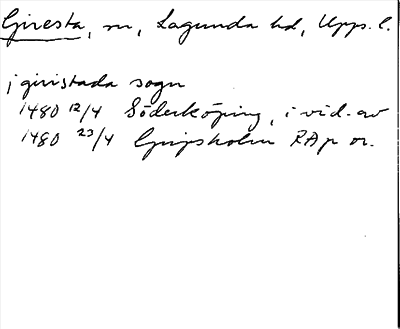 Giresta, sn, Lagunda hd, Upps. l.
j giristada sogn
1480 12/4 Söderköping, i vid. av
1480 23/4 Gripsholm RAp or.